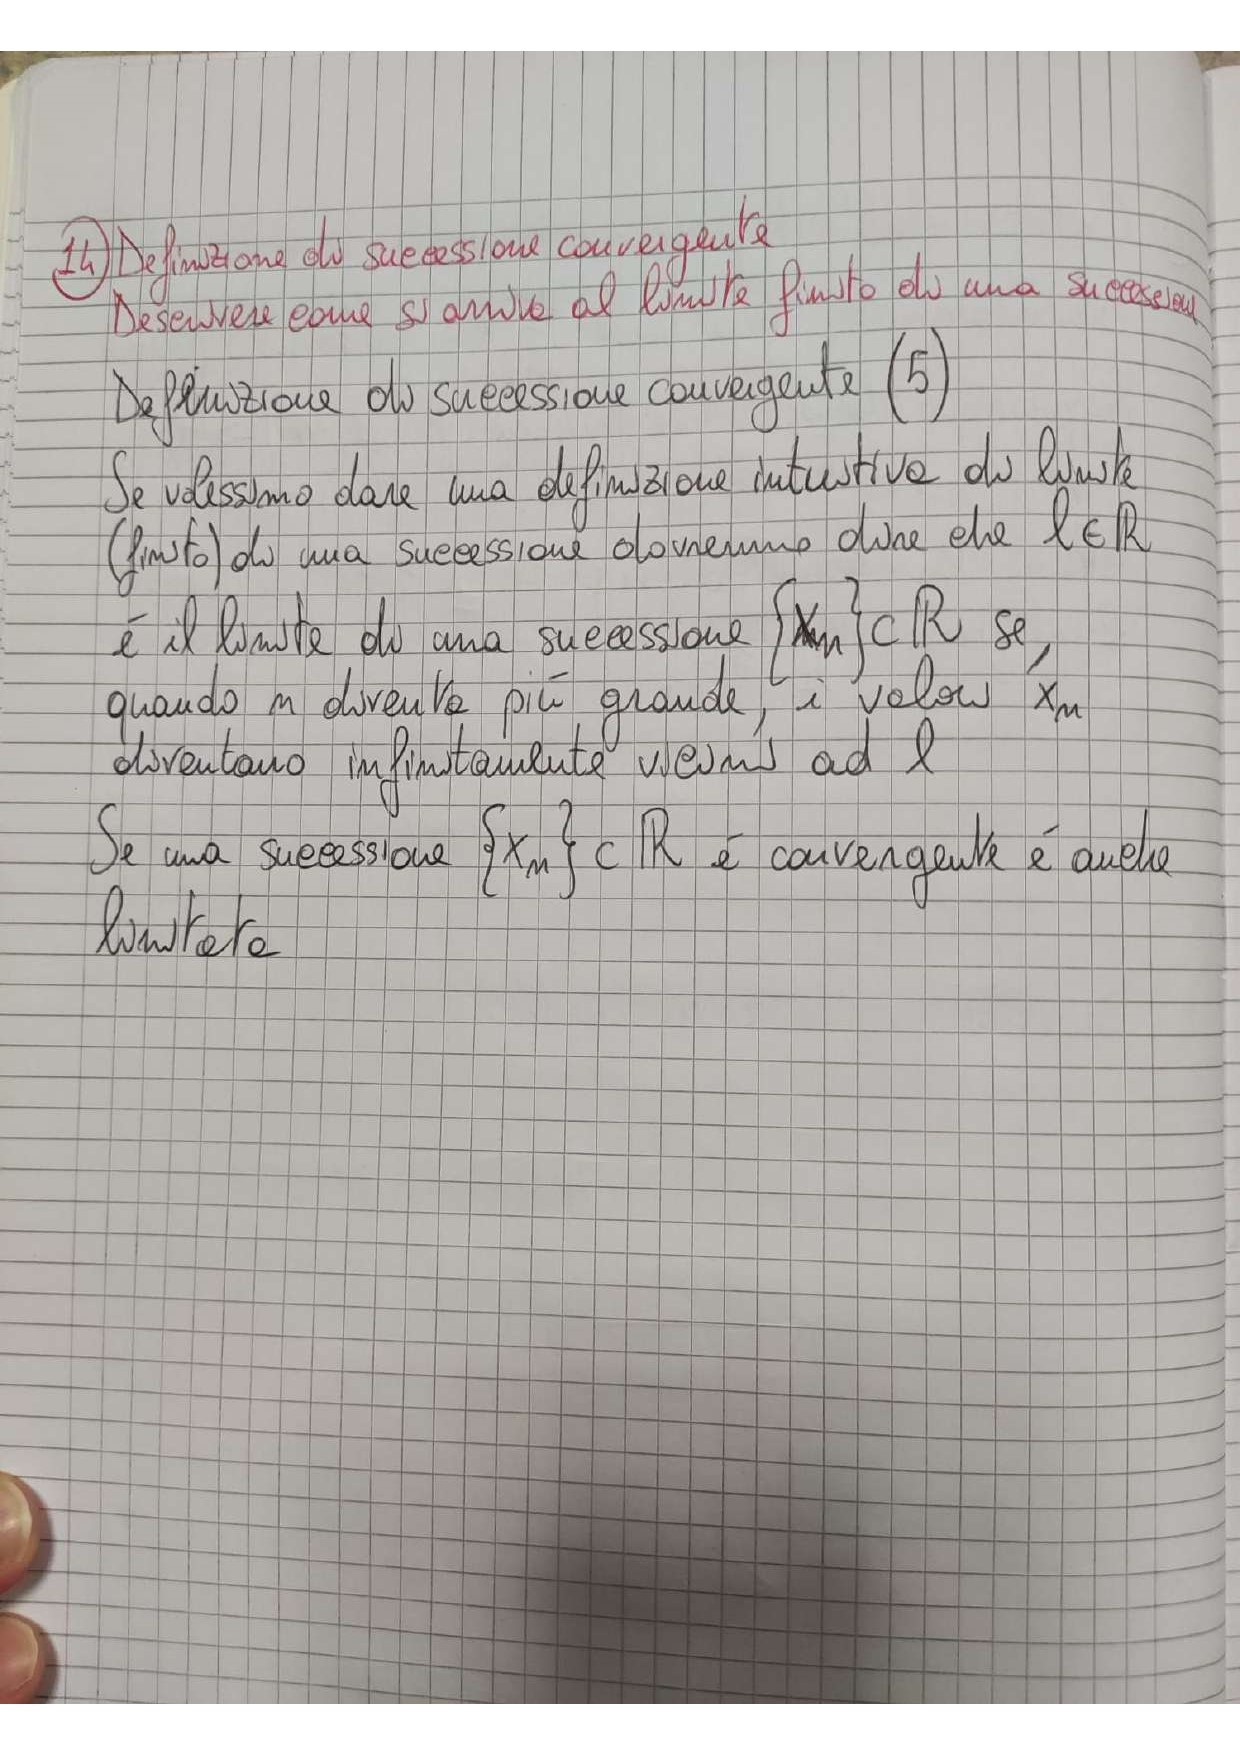 14) Definizione di successione convergente
Descrivere come si arriva al limite finito di una successione
Definizione di successione convergente (5)
Se volessimo dare una definizione intuitiva di limite
(finito) di una successione dovremmo dire che l∈ℝ
è il limite di una successione {xn}⊂ℝ se,
quando n diventa più grande, i valori xn
diventano infinitamente vicini ad l
Se una successione {xn}⊂ℝ è convergente è anche
limitata